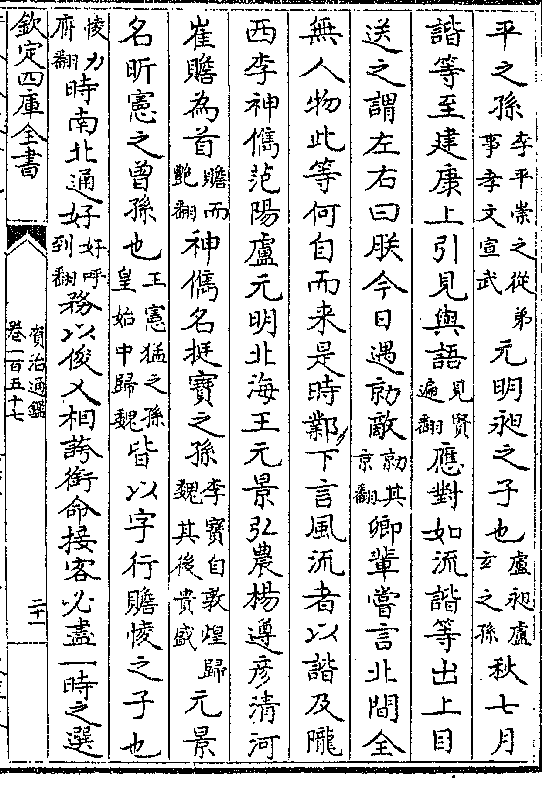 平之孫李平崇之從弟事孝文宣武元明昶之子也盧昶盧玄之孫秋七月
諧等至建康上引見與語見賢遍翻應對如流諧等出上目
送之謂左右曰朕今日遇勍敵勍其京翻卿輩嘗言北間全
無人物此等何自而来是時鄴下言風流者以諧及隴
西李神儁范陽盧元明北海王元景弘農楊遵彦清河
崔贍為首贍而艶翻神儁名挺寳之孫李寳自敦煌歸魏其後貴盛元景
名昕憲之曾孫也王憲猛之孫皇始中歸魏皆以字行贍㥄之子也
㥄力膺翻時南北通好好呼到翻務以俊乂相誇銜命接客必盡一時之選
欽定四庫全書
資治通鑑
卷一百五十七
二十一